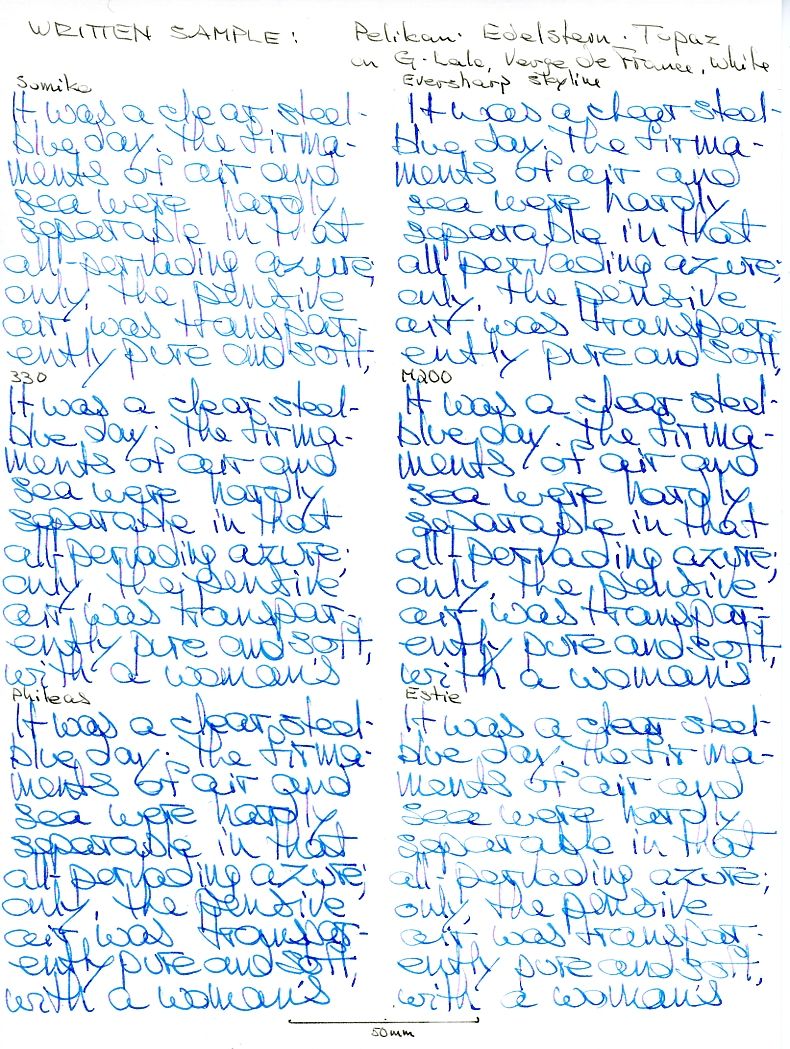 WRITTEN SAMPLE: Pelikan· Edelstein· Topaz
on G·Lalo, Verge de France, White
Sumiko
It was a clear steel-
blue day. The firma-
ments of air and
sea were hardly
separable in that
all-pervading azure;
only, the pensive
air was transpar-
ently pure and soft,
Eversharp Skyline
It was a clear steel-
blue day. The firma-
ments of air and
sea were hardly
separable in that
all pervading azure;
only, the pensive
air was transpar-
ently pure and soft,
330
It was a clear steel-
blue day. The firma-
ments of air and
sea were hardly
separable in that
all-pervading azure;
only, the pensive
air was transpar-
ently pure and soft,
with a woman's
M200
It was a clear steel-
blue day. The firma-
ments of air and
sea were hardly
separable in that
all-pervading azure;
only, the pensive
air was transpar-
ently pure and soft,
with a woman's
Phileas
It was a clear, steel-
blue day. The firma-
ments of air and
sea were hardly
separable in that
all-pervading azure;
only, the pensive
air was transpar-
ently pure and soft,
with a woman's
Estie
It was a clear steel-
blue day. The firma-
ments of air and
sea were hardly
separable in that
all-pervading azure;
only, the pensive
air was transpar-
ently pure and soft,
with a woman's
50mm